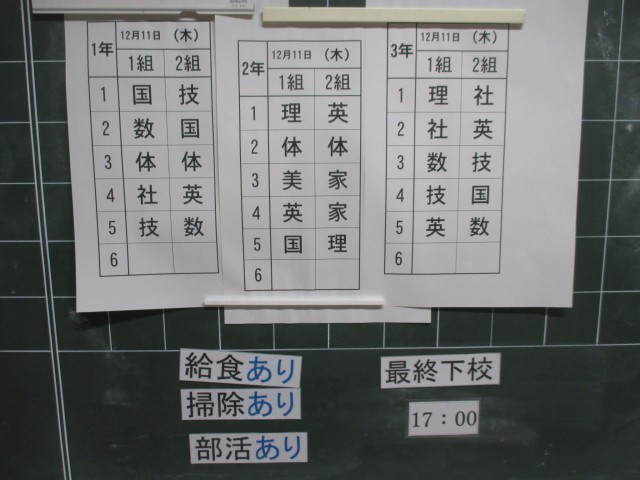 1年 12月11日 （木）
1組 2組
1 国 技
2 数 国
3 体 体
4 社 英
5 技 数
6
2年 12月11日 （木）
1組 2組
1 理 英
2 体 体
3 美 家
4 英 家
5 国 理
6
3年 12月11日 （木）
1組 2組
1 理 社
2 社 英
3 数 技
4 技 国
5 英 数
6
給食あり
掃除あり
部活あり
最終下校
17：00